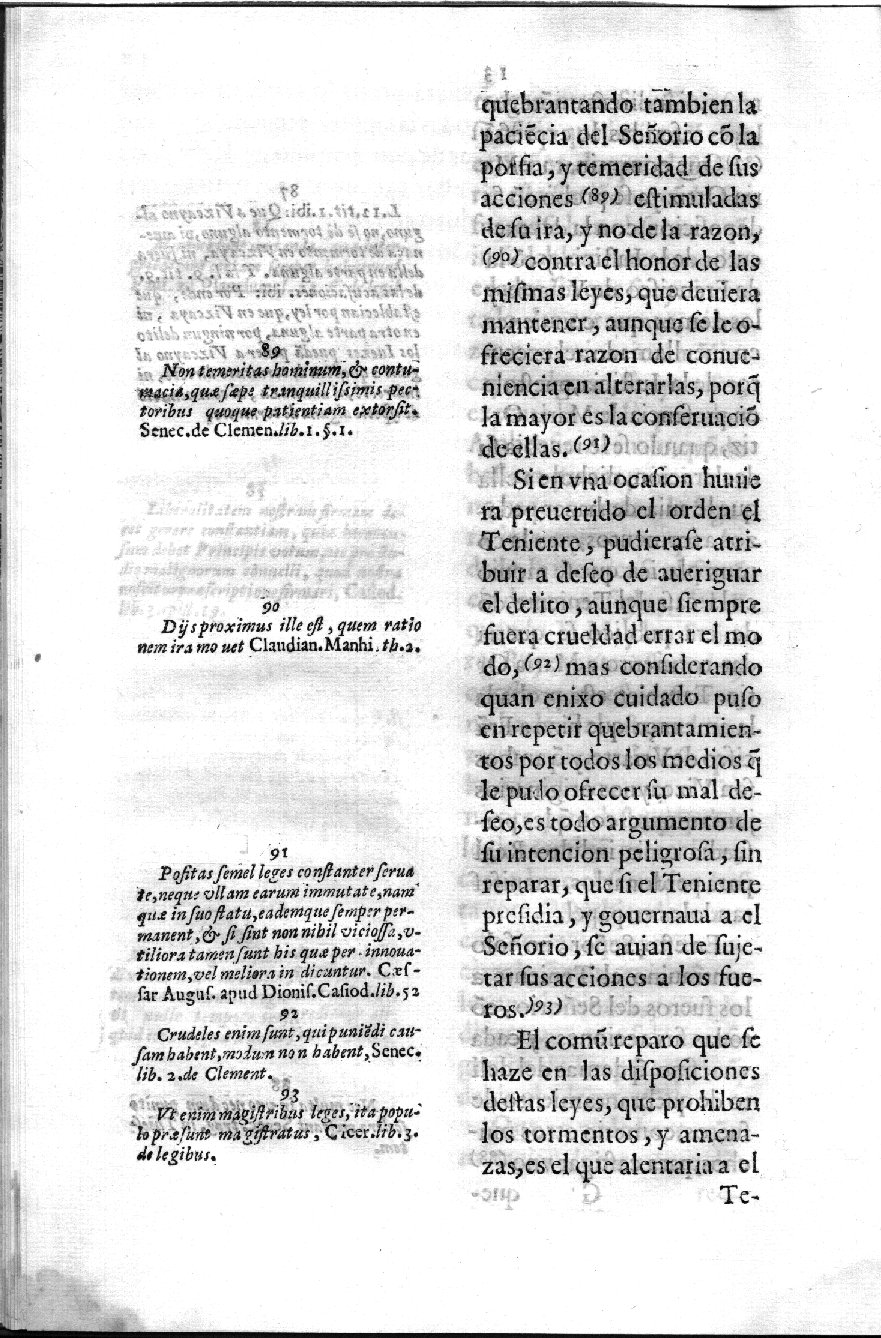 quebrantando tambien la
paciẽcia del Señorio cõ la
porfia, y temeridad de ſus
acciones (89) eſtimuladas
de ſu ira, y no de la razon,
(90) contra el honor de las
miſmas leyes, que deuiera
mantener, aunque ſe le o-
freciera razon de conue-
niencia en alterarlas, porq̃
la mayor es la conſeruaciõ
de ellas. (91)
Si en vna ocaſion huuie
ra preuertido el orden el
Teniente, pudieraſe atri-
buir a deſeo de aueriguar
el delito, aunque ſiempre
fuera crueldad errar el mo
do, (92) mas conſiderando
quan enixo cuidado puſo
en repetir quebrantamien-
tos por todos los medios q̃
le pudo ofrecer ſu mal de-
ſeo, es todo argumento de
ſu intencion peligroſa, ſin
reparar, que ſi el Teniente
preſidia, y gouernaua a el
Señorio, ſe auian de ſuje-
tar sus acciones a los fue-
ros. (93)
El comũ reparo que ſe
haze en las diſpoſiciones
deſtas leyes, que prohiben
los tormentos, y amena-
zas, es el que alentaria a el
Te-
89
Non temeritas hominum, & contu-
macia, quæ ſæpe tranquilliſsimis pec-
toribus quoque patientiam extorſit.
Senec. de Clemen. lib. 1. §. 1.
90
Dijs proximus ille eſt, quem ratio
nem ira mouet Claudian. Manhi. th. 2.
91
Poſitas ſemel leges conſtanter ſerua
te, neque vllam earum immutate, nam
quæ in ſuo ſtatu, eademque ſemper per-
manent, & ſi ſint non nihil vicioſſa, v-
tiliora tamen ſunt his quæ per innoua-
tionem, vel meliora in dicuntur. Cæſ-
ſar Auguſ. apud Dioniſ. Caſiod. lib. 52
92
Crudeles enim ſunt, qui puniẽdi cau-
ſam habent, modum non habent, Senec.
lib. 2. de Clement.
93
Vt enim magiſtribus leges, ita popu-
lo præſunt magiſtratus, Cicer. lib. 3.
de legibus.